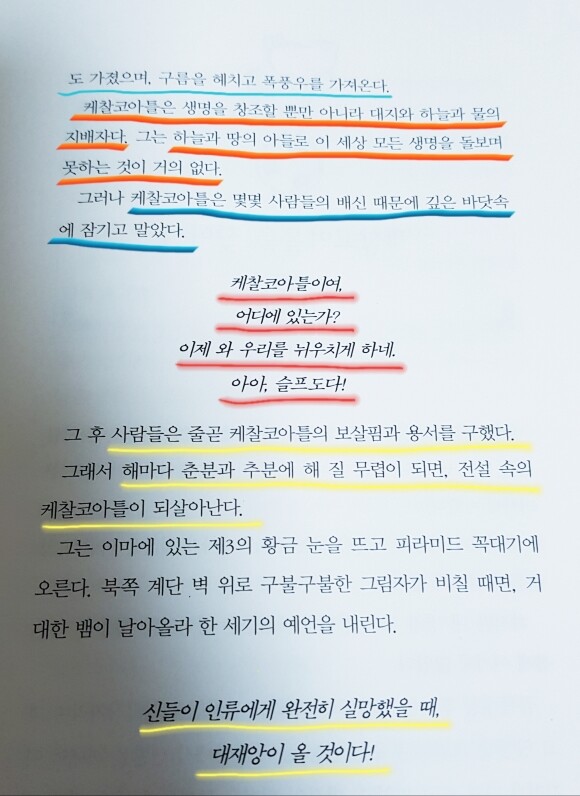 도 가졌으며, 구름을 헤치고 폭풍우를 가져온다.
케찰코아틀은 생명을 창조할 뿐만 아니라 대지와 하늘과 물의
지배자다. 그는 하늘과 땅의 아들로 이 세상 모든 생명을 돌보며
못하는 것이 거의 없다.
그러나 케찰코아틀은 몇몇 사람들의 배신 때문에 깊은 바닷속
에 잠기고 말았다.
케찰코아틀이여,
어디에 있는가?
이제 와 우리를 뉘우치게 하네.
아아, 슬프도다!
그 후 사람들은 줄곧 케찰코아틀의 보살핌과 용서를 구했다.
그래서 해마다 춘분과 추분에 해 질 무렵이 되면, 전설 속의
케찰코아틀이 되살아난다.
그는 이마에 있는 제3의 황금 눈을 뜨고 피라미드 꼭대기에
오른다. 북쪽 계단 벽 위로 구불구불한 그림자가 비칠 때면, 거
대한 뱀이 날아올라 한 세기의 예언을 내린다.
신들이 인류에게 완전히 실망했을 때,
대재앙이 올 것이다!